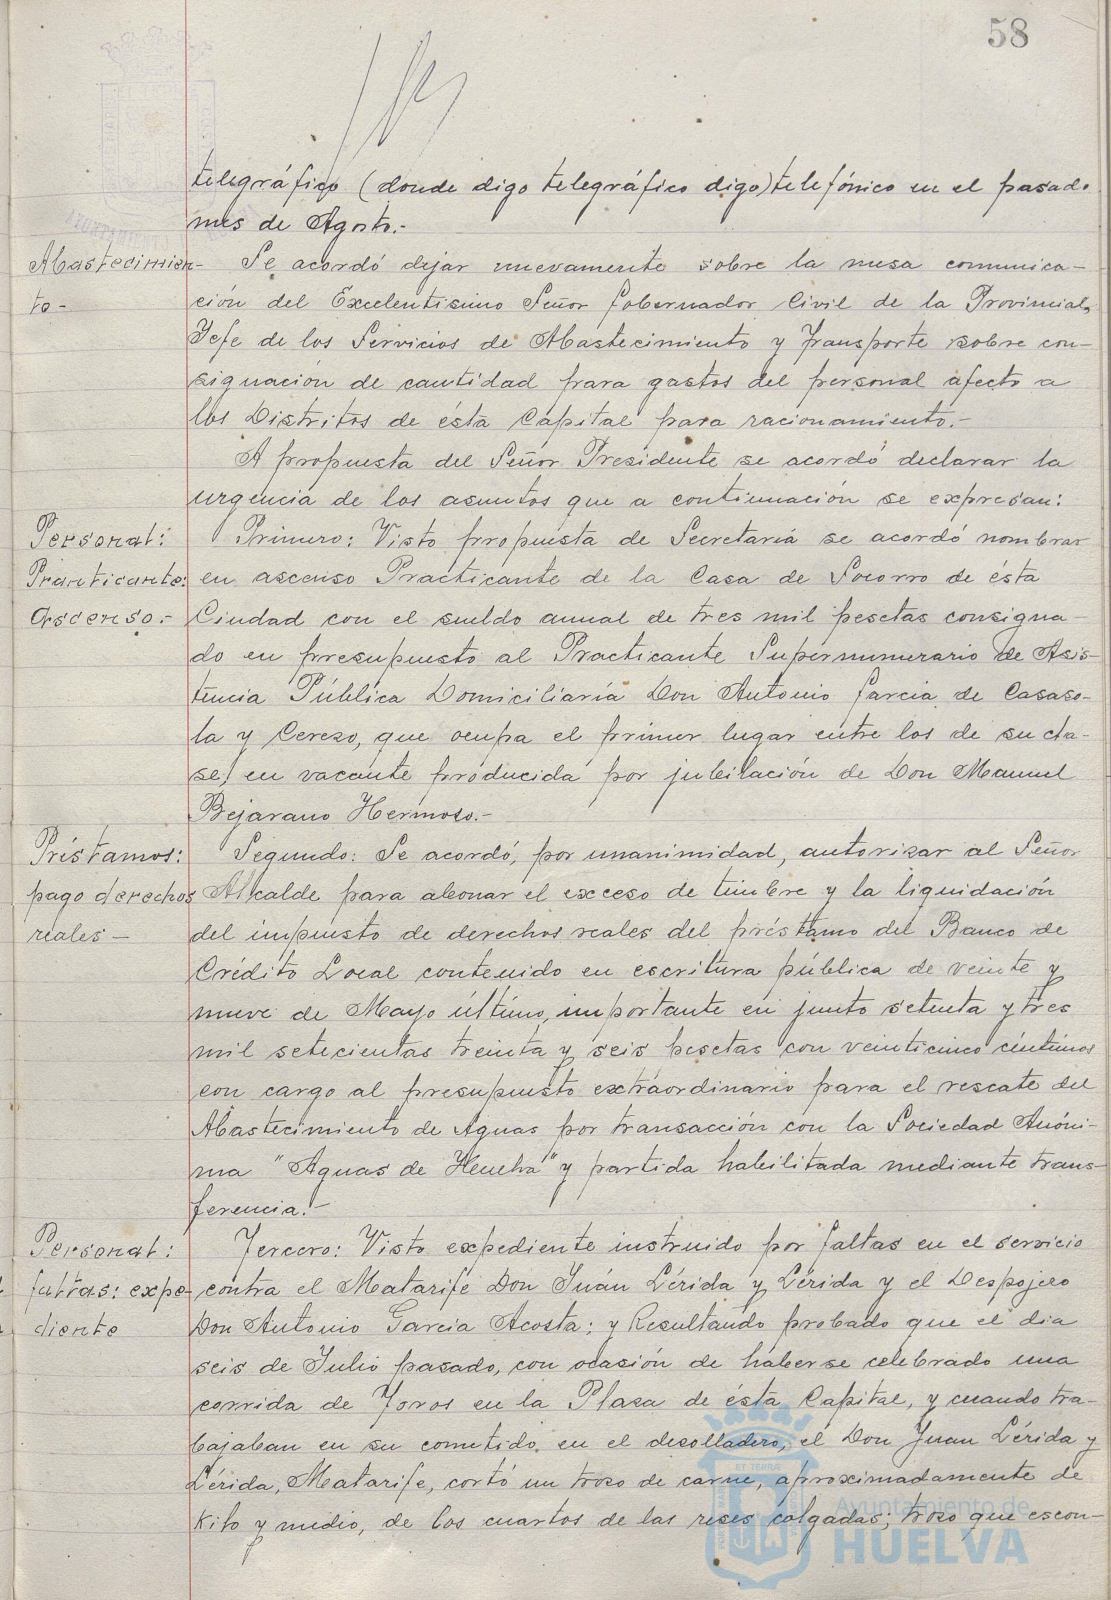 58
telegráfico (donde digo telegráfico digo) telefónico en el pasado
mes de Agosto.-
Abastecimien-
to-
Se acordó dejar nuevamente sobre la mesa comunica-
ción del Excelentísimo Señor Gobernador Civil de la Provincial,
Jefe de los Servicios de Abastecimiento y Transporte sobre con-
signación de cantidad para gastos del personal afecto a
los Distritos de ésta Capital para racionamiento.-
A propuesta del Señor Presidente se acordó declarar la
urgencia de los asuntos que a continuación se expresan:
Personal:
Practicante:
Ascenso.-
Primero: Visto propuesta de Secretaría se acordó nombrar
en ascenso Practicante de la Casa de Socorro de ésta
Ciudad con el sueldo anual de tres mil pesetas consigna-
do en presupuesto al Practicante Supernumerario de Asis-
tencia Pública Domiciliaría Don Antonio Garcia de Casaso-
la y Cerezo, que ocupa el primer lugar entre los de su cla-
se, en vacante producida por jubilación de Don Manuel
Bejarano Hermoso.-
Préstamos:
pago derechos
reales-
Segundo: Se acordó, por unanimidad, autorizar al Señor
Alcalde para abonar el exceso de timbre y la liquidación
del impuesto de derechos reales del préstamo del Banco de
Crédito Local contenido en escritura pública de veinte y
nueve de Mayo último, importante en junto setenta y tres
mil setecientas treinta y seis pesetas con veinticinco céntimos
con cargo al presupuesto extraordinario para el rescate del
Abastecimiento de Aguas por transacción con la Sociedad Anóni-
ma "Aguas de Huelva" y partida habilitada mediante trans-
ferencia.-
Personal:
faltas: expe-
diente
Tercero: Visto expediente instruido por faltas en el servicio
contra el Matarife Don Juán Lérida y Lérida y el Despojero
Don Antonio García Acosta; y Resultando probado que el dia
seis de Julio pasado, con ocasión de haberse celebrado una
corrida de Toros en la Plaza de ésta Capital, y cuando tra-
bajaban en su cometido en el desolladero, el Don Juan Lérida y
Lérida, Matarife, cortó un trozo de carne, aproximadamente de
kilo y medio, de los cuartos de las reses colgadas; trozo que escon-
Ayuntamiento de
HUELVA